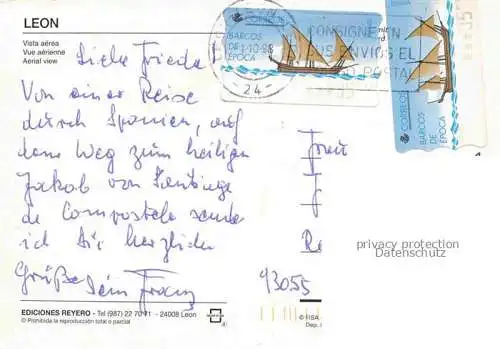 LEON
Vista aérea
Vue aérienne
Aerial view
Liebe Frieda!
Von einer Reise
durch Spanien, auf
dem Weg zum heiligen
Jakob von Santiago
de Compostela sende
ich Dir herzliche
Grüße
Dein Franz
EDICIONES REYERO - Tel (987) 22 70 71 - 24008 Leon
© Prohibida la reproducción total o parcial
BARCOS
DE
EPOCA
CONSIGNE
SUS ENVIOS EL
POSTAL
24
CORREOS
BARCOS DE
EPOCA
Frau
93055
privacy protection
Datenschutz
© FISA
Dep.